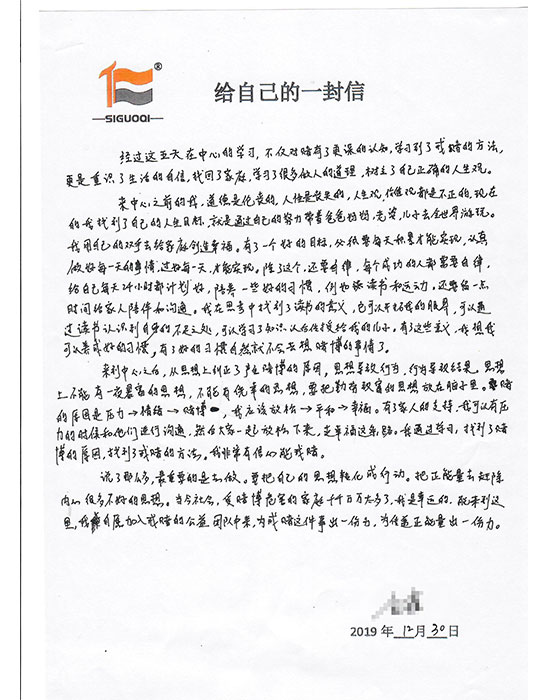 ®
SIGUOQI
给自己的一封信
经过这五天在中心的学习，不仅对赌有了更深的认知，学习到了戒赌的方法，
更是重识了生活的自信，找回了家庭，学习了很多做人的道理，树立了自己正确的人生观。
来中心之前的我，道德是伦丧的，人格是丧失的，人生观，价值观都是不正的，现在
的我找到了自己的人生目标，就是通过自己的努力带着爸爸妈妈，老婆，儿子去全世界游玩。
我用自己的双手去给家庭创造幸福。有了一个好的目标，必须要每天积累才能实现，认真
做好每一天的事情，过好每一天，才能实现。除了这个，还要自律，每个成功的人都需要自律，
给自己每天24小时都计划好，陪养一些好的习惯，例如独读书和运动，还要留一点
时间给家人陪伴和沟通。我在思考中找到了读书的意义，它可以开拓我的眼界，可以通
过读书认识到自身的不足之处，可以学习了知识以后传授给我的儿子。有了这些意义，我想我
可以养成好的习惯，有了好的习惯自然就不会去想赌博的事情了。
来到中心之后，从思想上纠正了产生赌博的原因，思想导致行为，行为导致结果。思想
上不能有一夜暴富的思想，不能有侥幸的思想，要把勤劳致富的思想放在脑子里。赌
的原因是压力→情绪→赌博，我应该放松→平和→幸福。有了家人的支持，我可以有压
力的时候和他们进行沟通，然后大家一起放松下来，走幸福这条路。我通过学习，找到了赌
博的原因，找到了戒赌的方法。我非常有信心能戒赌。
说了那么多，最重要的是去做。要把自己的思想转化成行动。把正能量去赶除
内心很多不好的思想。当今社会，受赌博危害的家庭千千百万太多了，我是幸运的，能来到这
里，我自愿加入戒赌的公益团队中来，为戒赌这件事出一份力，为传递正能量出一份力。
2019年12月30日